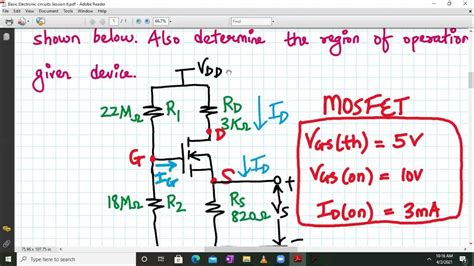 Basic Electronic circuits Session 6.pdf - Adobe Reader
shown below. Also determine the region of operation
given device.
VDD
22MΩ R1 RD 3KΩ ID
D
G
IG
S ID
18MΩ R2 RS 820Ω VS
+
-
MOSFET
VGS(th) = 5V
VGS(on) = 10V
ID(on) = 3mA
Type here to search
10:16 AM
4/2/2021